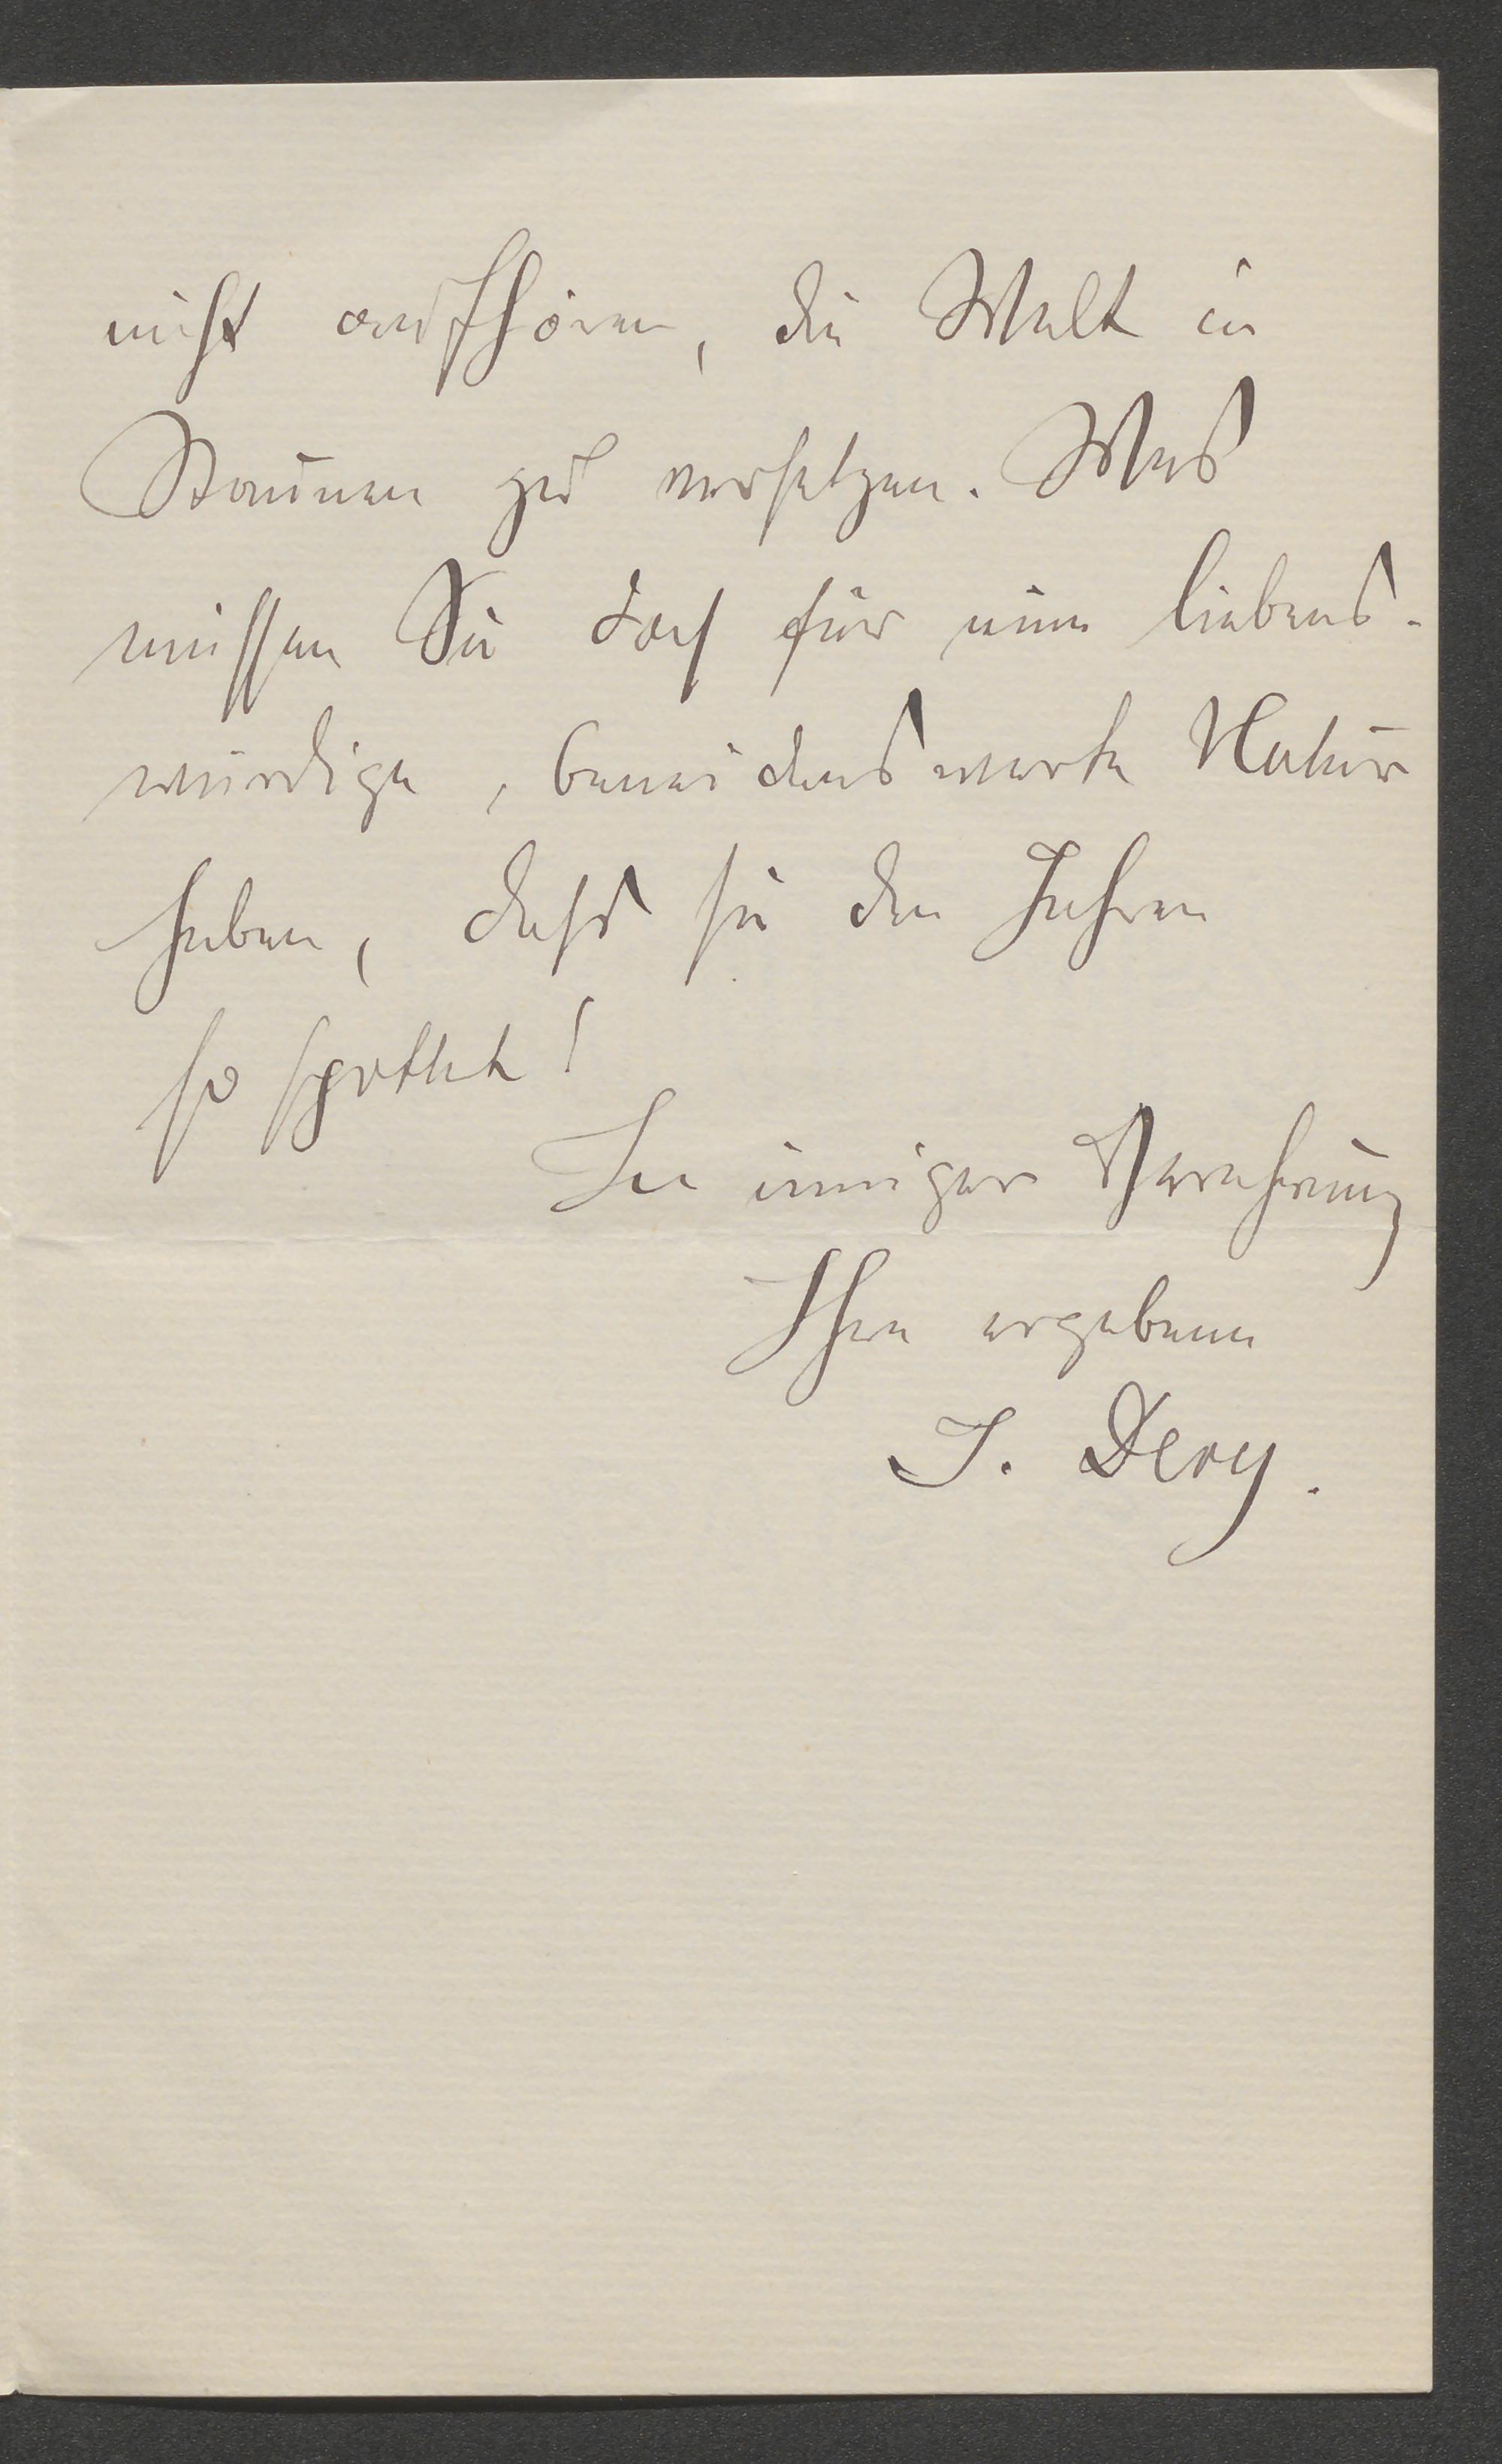 nicht aufhören, die Welt in
Staunen zu versetzen. Was
müssen Sie doch für eine liebens-
würdige, beneidenswerte Natur
haben, dass sie den Jahren
so spottet!
In inniger Verehrung
Ihre ergebene
J. Dery.